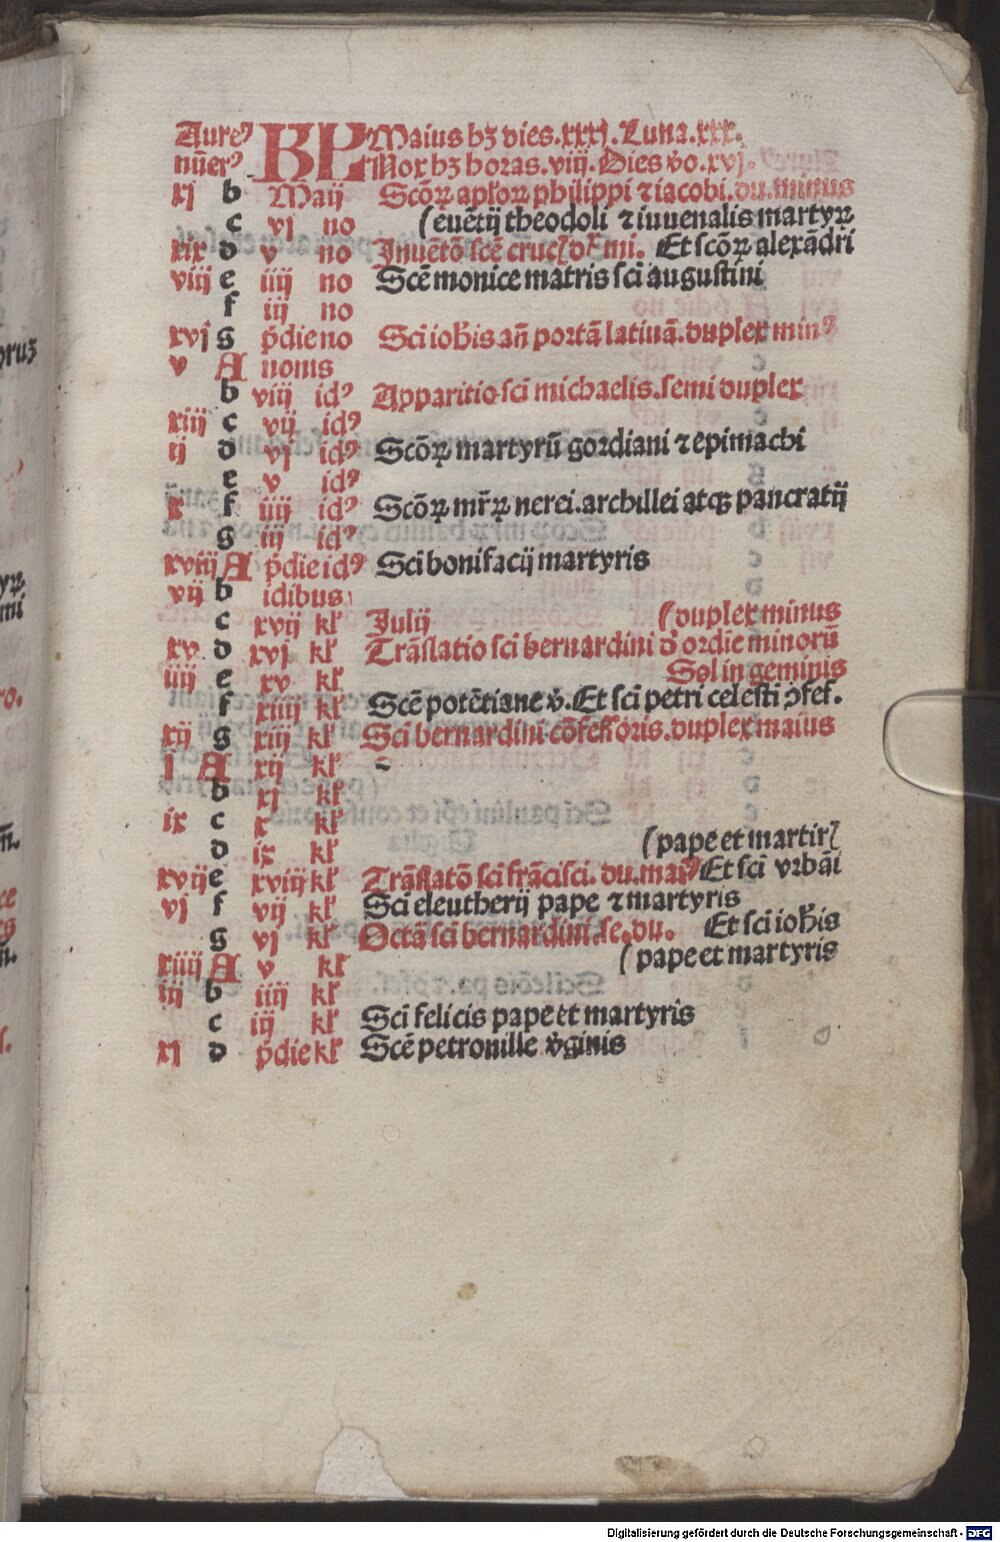 Aureꝰ KL Maius hꝫ dies.xxxj. Luna.xxx.
nũerꝰ Nox hꝫ horas.viij. Dies v̾o.xvj.
xj b Maij Scõꝝ apl'oꝝ philippi ⁊ iacobi.du.minus
c vj no (euẽtij theodoli ⁊ iuuenalis martyꝝ
xix d v no Inuẽtõ scẽ cruc Et scõꝝ alexãdri
viij e iiij no Scẽ monice matris sci augustini
f iij no
xvj g p̃die no Sci ioh̃is añ portã latinã.duplex minꝰ
v A nonis
b viij idꝰ Apparitio sci michaelis.semi duplex
xiij c vij idꝰ
ij d vj idꝰ Scõꝝ martyrũ gordiani ⁊ epimachi
e v idꝰ
x f iiij idꝰ Scõꝝ mr̃ꝝ nerei.archillei atqꝫ pancratij
g iij idꝰ
xviij A p̃die idꝰ Sci bonifacij martyris
vij b idibus
c xvij kl' Julij (duplex minus
xv d xvj kl' Trãslatio sci bernardini d' ordie minorũ
iiij e xv kl' Sol in geminis
f xiiij kl' Scẽ potẽtiane v̾. Et sci petri celesti ꝯfes.
xij g xiij kl' Sci bernardini cõfessoris.duplex maius
j A xij kl'
b xj kl'
ix c x kl'
d ix kl' (pape et martir
xvij e xviij kl' Trãslatõ sci frãcisci.du.maiꝰ Et sci vrbãi
vj f vij kl' Sci eleutherij pape ⁊ martyris
g vj kl' Octã sci bernardini.se.du. Et sci ioh̃is
xiiij A v kl' (pape et martyris
iij b iiij kl'
c iij kl' Sci felicis pape et martyris
xj d p̃die kl' Scẽ petronille v̾ginis
Digitalisierung gefördert durch die Deutsche Forschungsgemeinschaft - DFG